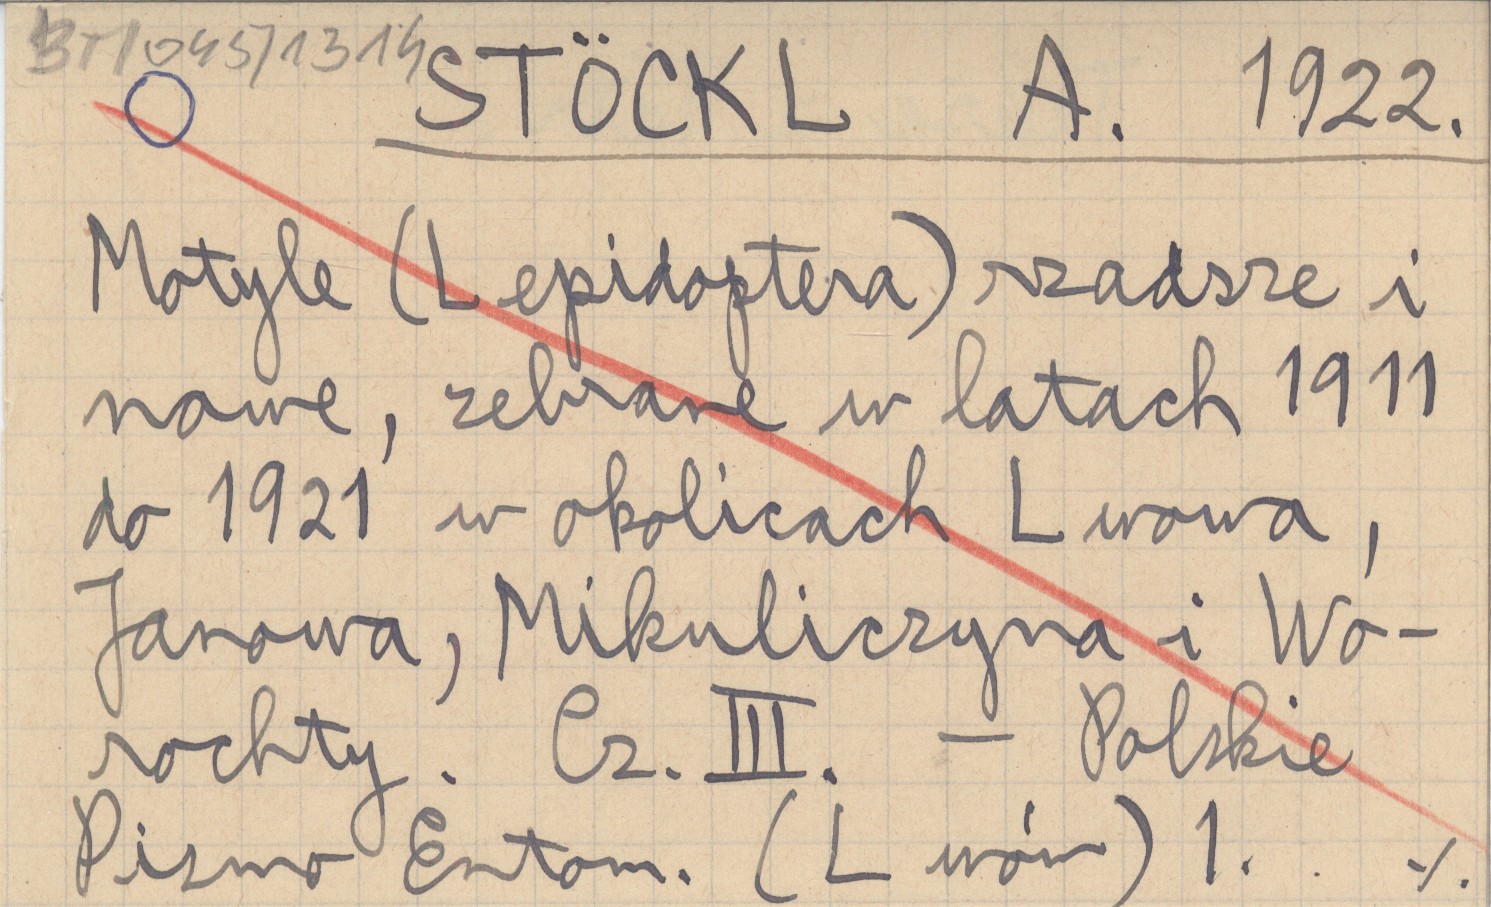 BTI 045/1314
STÖCKL A. 1922.
Motyle (Lepidoptera) rzadsze i
nowe, zebrane w latach 1911
do 1921 w okolicach Lwowa,
Janowa, Mikuliczyna i Wo-
rochty. Cz. III. — Polskie
Pismo Entom. (Lwów) 1. ./.